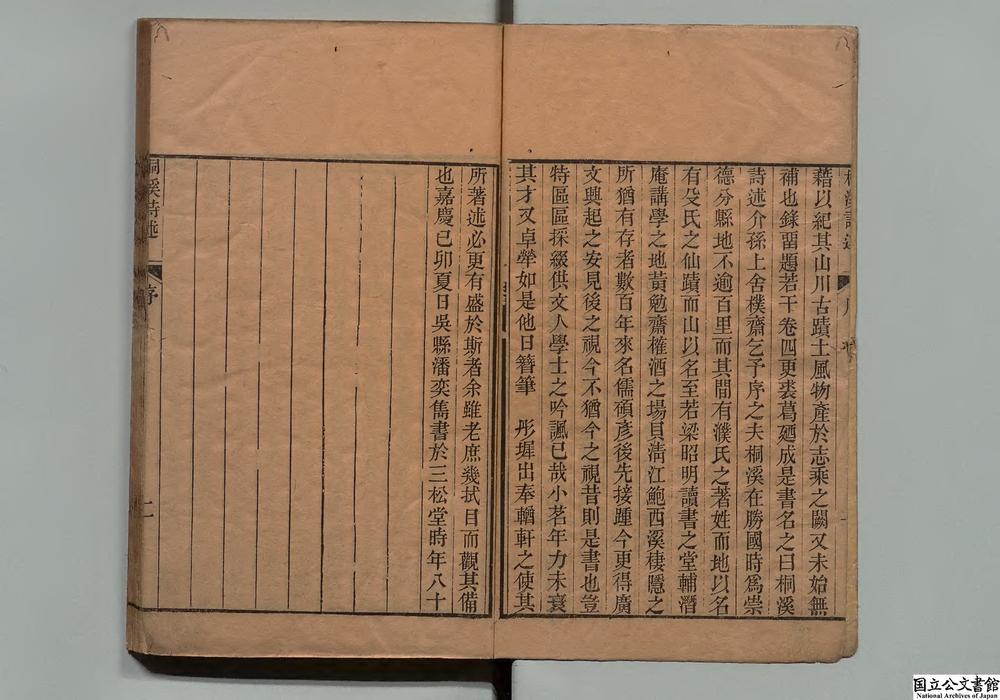 藉以紀其山川古蹟土風物產於志乘之闕又未始無
補也錄畱題若干卷四更裘葛廼成是書名之曰桐溪
詩述介孫上舍樸齋乞予序之夫桐溪在勝國時爲崇
德分縣地不逾百里而其間有濮氏之著姓而地以名
有殳氏之仙蹟而山以名至若梁昭明讀書之堂輔潛
庵講學之地黃勉齋榷酒之場貝淸江鮑西溪棲隱之
所猶有存者數百年來名儒碩彥後先接踵今更得廣
文興起之安見後之視今不猶今之視昔則是書也豈
特區區採綴供文人學士之吟諷已哉小茗年力未衰
其才又卓犖如是他日簪筆 彤墀出奉輶軒之使其
所著述必更有盛於斯者余雖老庶幾拭目而觀其備
也嘉慶己卯夏日吳縣潘奕雋書於三松堂時年八十
桐溪詩述 序 二
国立公文書館
National Archives of Japan